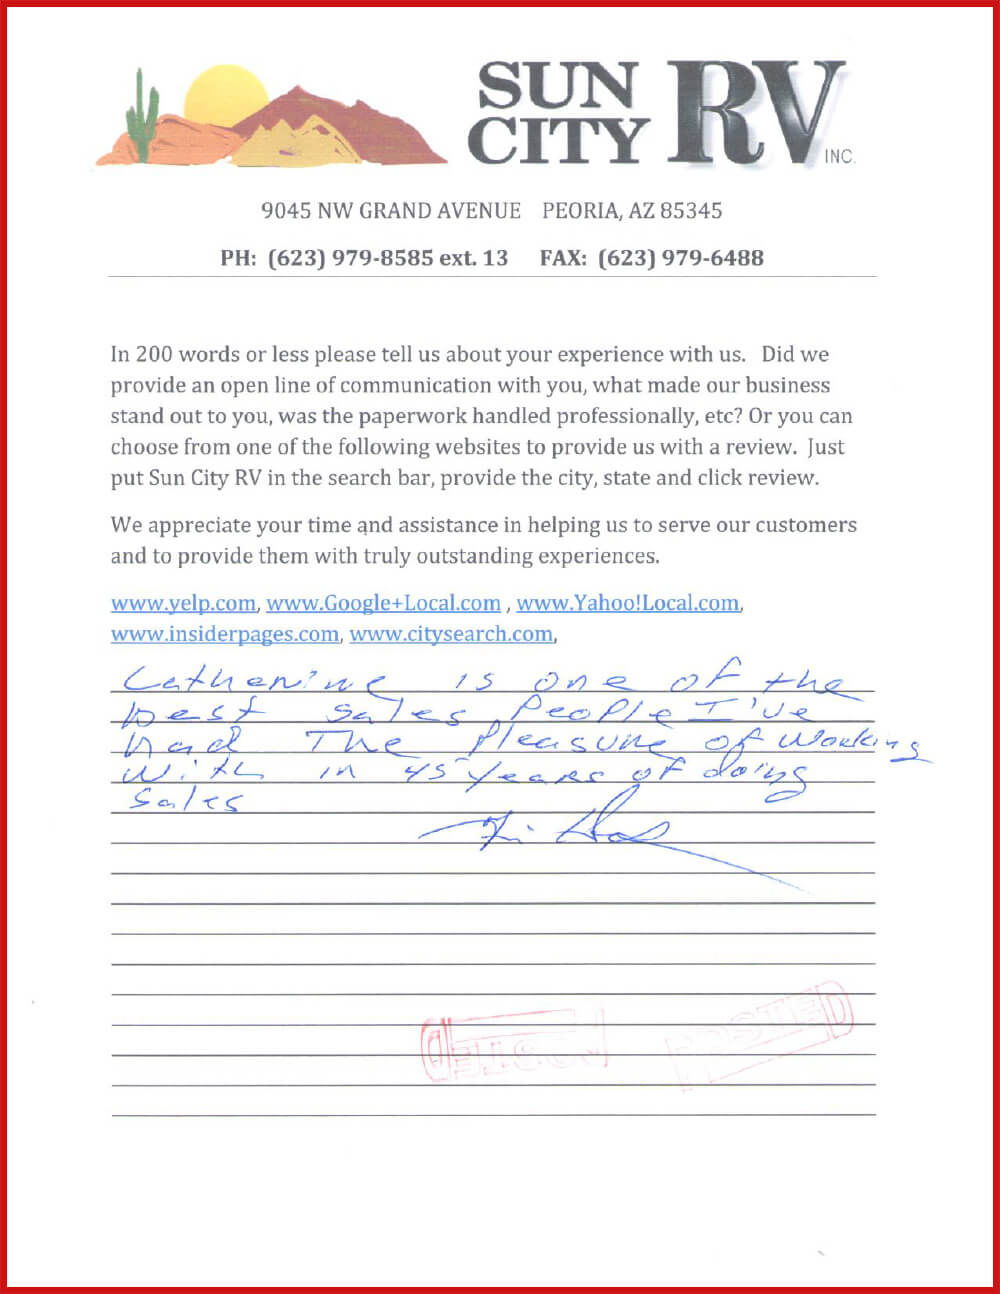 SUN
CITY RV INC.
9045 NW GRAND AVENUE PEORIA, AZ 85345
PH: (623) 979-8585 ext. 13 FAX: (623) 979-6488
In 200 words or less please tell us about your experience with us. Did we
provide an open line of communication with you, what made our business
stand out to you, was the paperwork handled professionally, etc? Or you can
choose from one of the following websites to provide us with a review. Just
put Sun City RV in the search bar, provide the city, state and click review.
We appreciate your time and assistance in helping us to serve our customers
and to provide them with truly outstanding experiences.
www.yelp.com, www.Google+Local.com , www.Yahoo!Local.com,
www.insiderpages.com, www.citysearch.com,
Catherine is one of the
best sales People I've
had The Pleasure of working
with in 45 years of doing
Sales
POSTED
POSTED